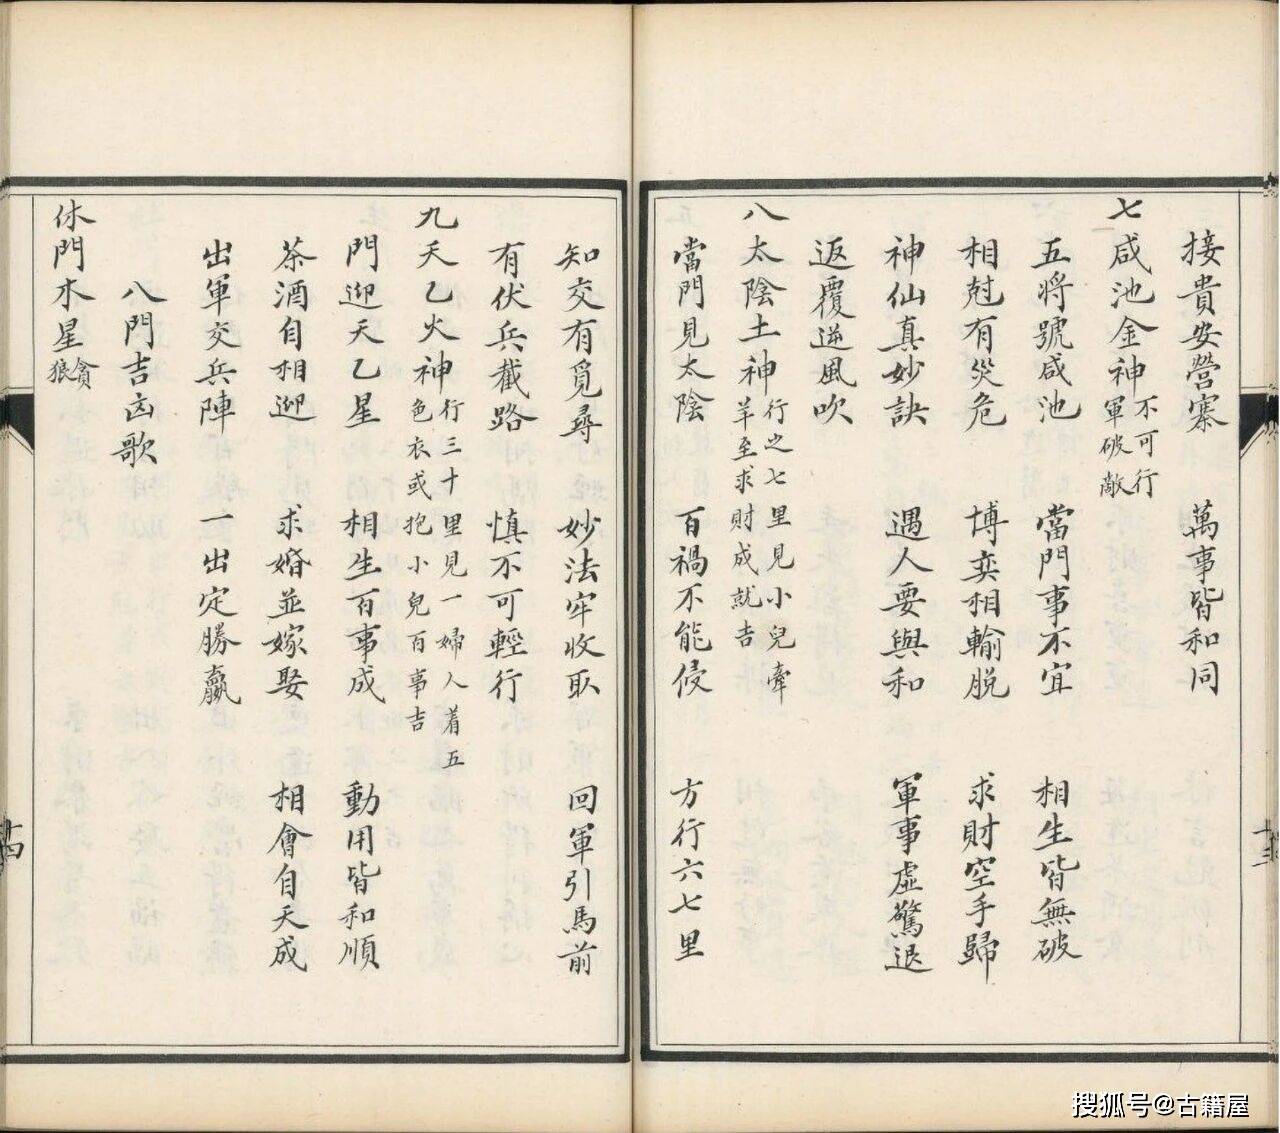 接貴安營寨　萬事皆和同
七咸池金神不可行軍破敵
五將號咸池　當門事不宜　相生皆無破
相尅有災危　博奕相輸脱　求財空手歸
神仙真妙訣　遇人要與和　軍事虛驚退
返覆逆風吹
八太陰土神行之七里見小兒牽羊至求財成就吉
當門見太陰　百禍不能侵　方行六七里
知交有覓尋　妙法牢收取　回軍引馬前
有伏兵截路　慎不可輕行
九天乙火神行三十里見一婦人着五色衣或抱小兒百事吉
門迎天乙星　相生百事成　動用皆和順
茶酒自相迎　求婚並嫁娶　相會自天成
出軍交兵陣　一出定勝贏
八門吉凶歌
休門木星貪狼
十三
十四
搜狐号@古籍屋